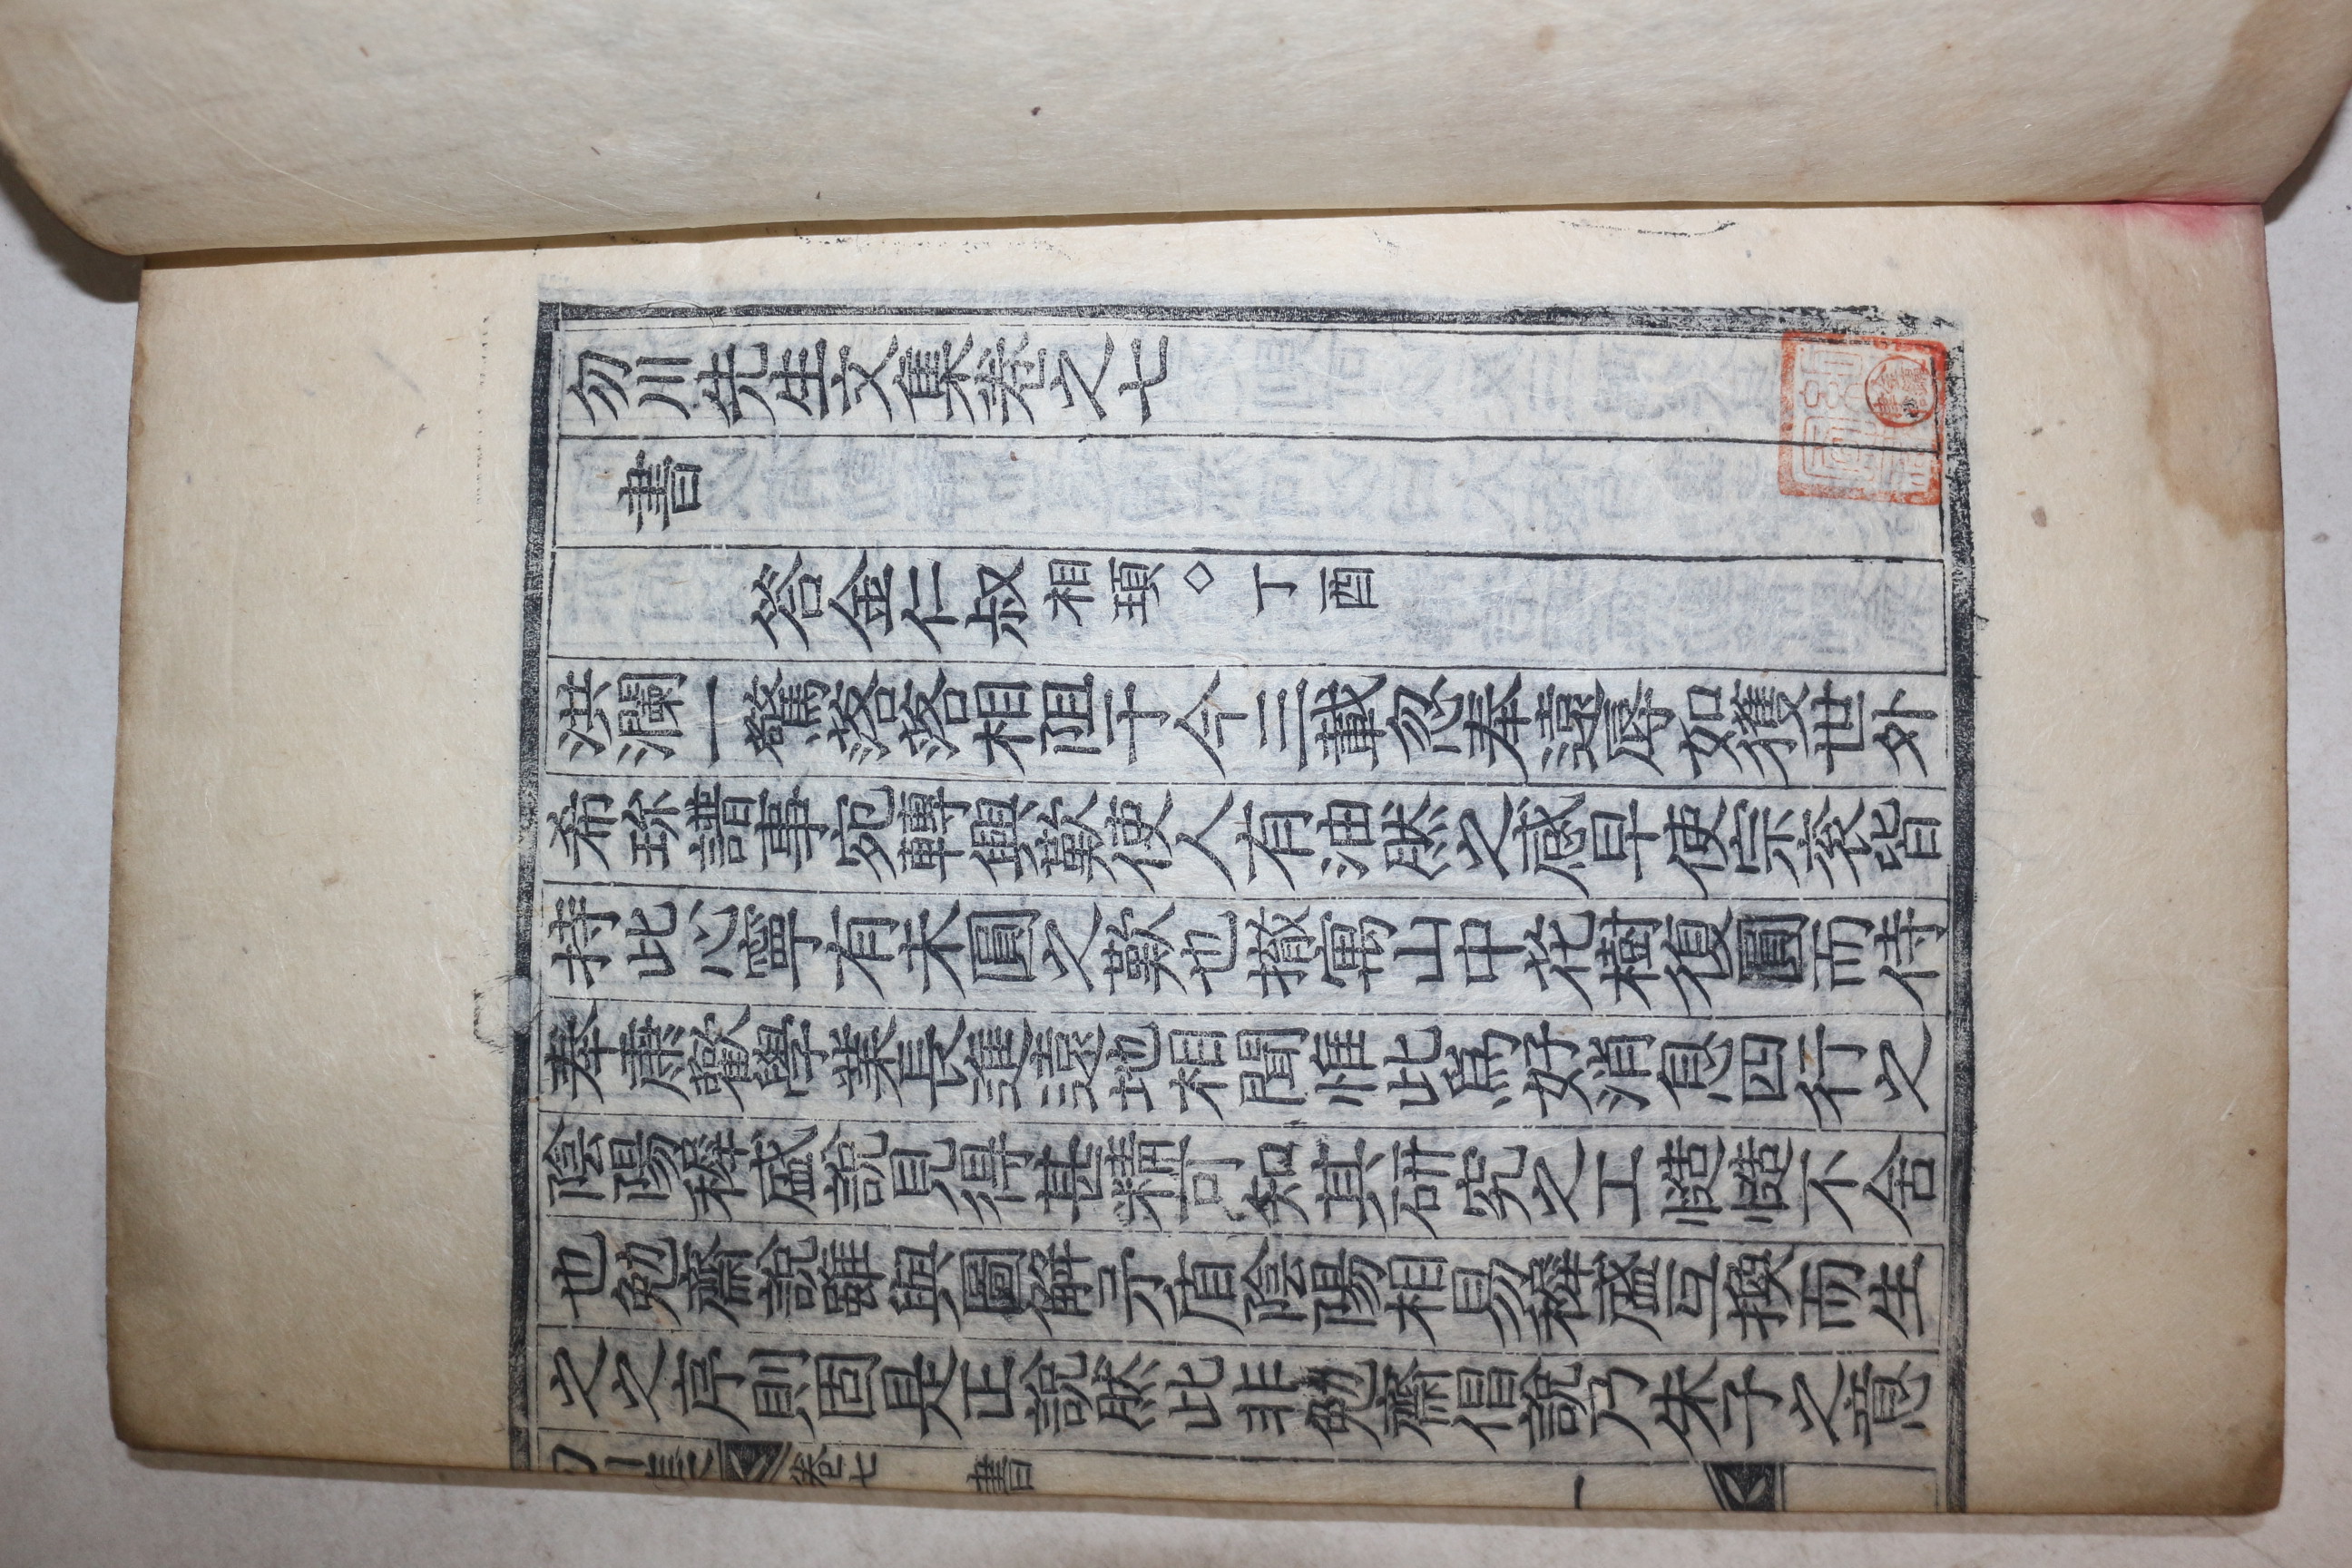 勿川先生文集卷之七
書
答金仁叔相頊◇丁酉
洪瀾一驚落落相阻于今三載忽奉遠辱如獲世外
希珍謄事宛轉與歎使人有油然之感早使宗兖皆
持此心寧有未圓之歎也撤寓山中花樹復圓而侍
奉康歡學業長進遠地相聞惟此爲好消息四行之
陰陽穉盛說見得甚精可知其硏究之工慥慥不舍
也勉齋說雖與圖解矛盾陰陽相易穉盛互換而生
之之序則固是正說然此非勉齋倡說乃朱子之意
勿川集 卷七 書 一